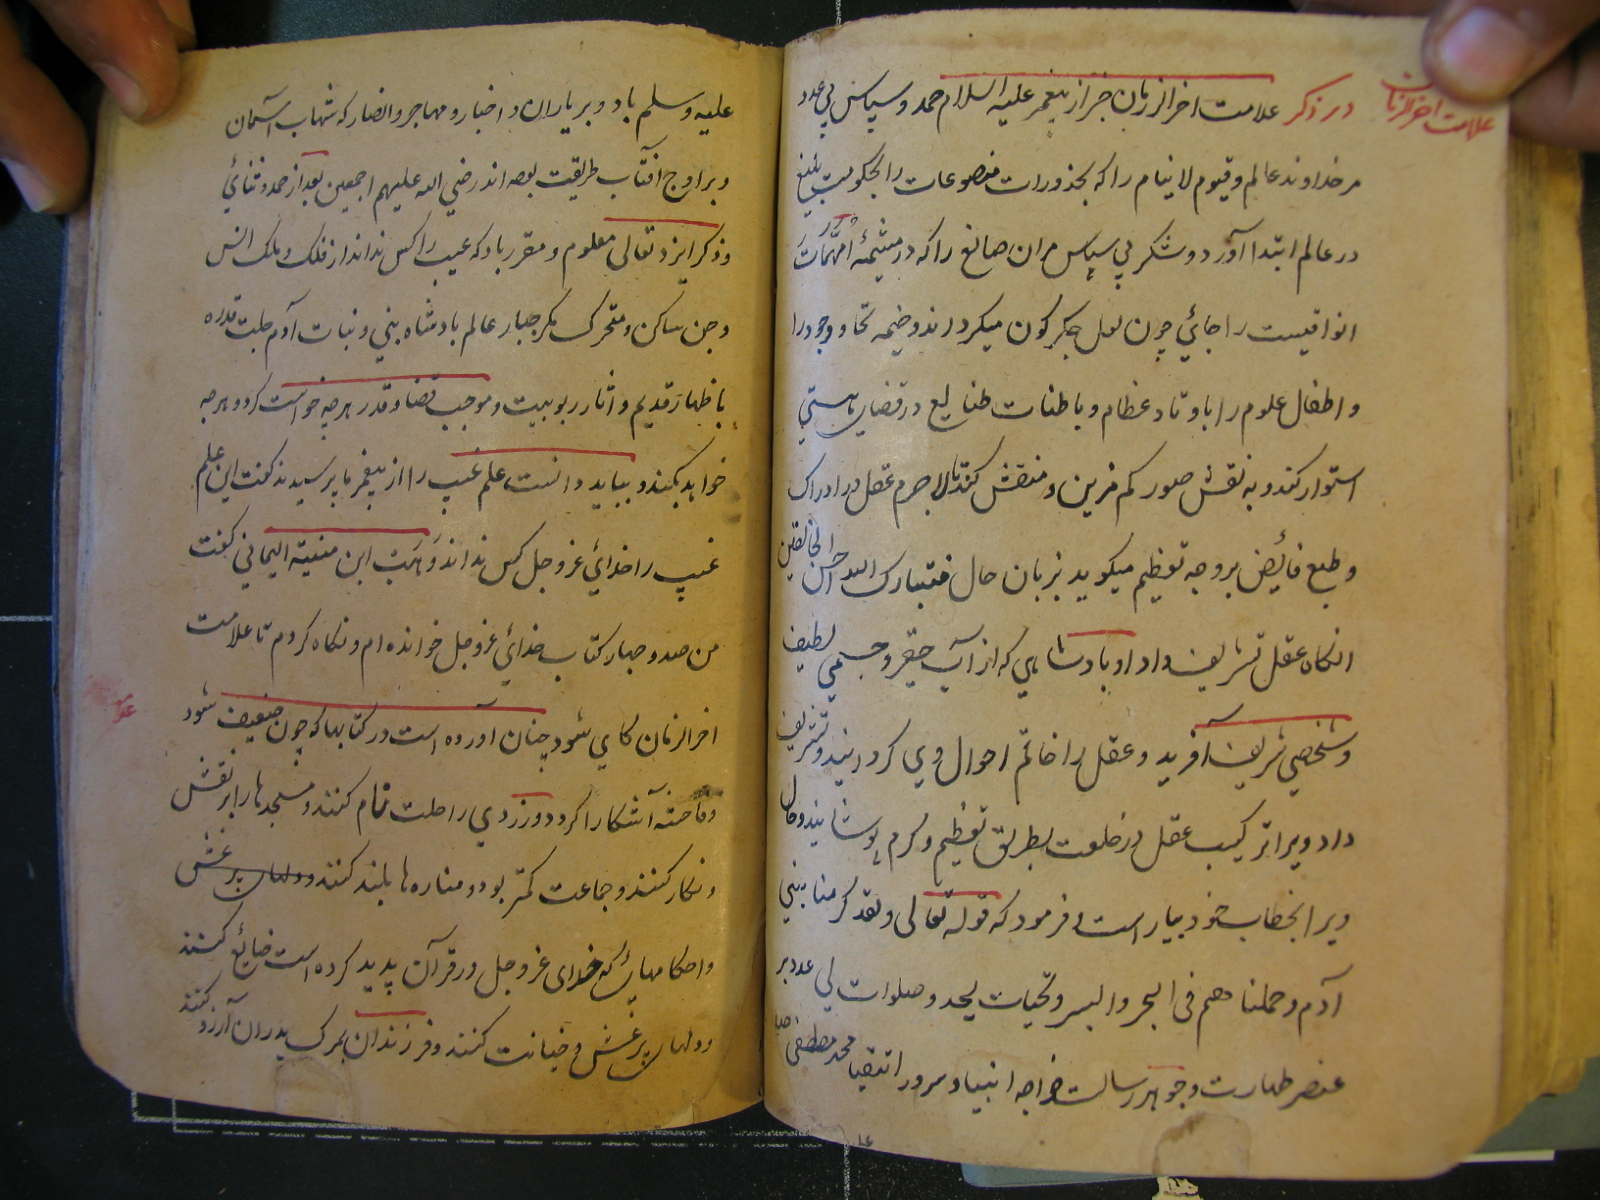 علامت اخر الزمان
در ذکر علامت اخر الزمان خبر از پیغمبر علیه السلام حمد و سپاس بی عدد
مر خداوند عالم و قیوم لاینام را که
در عالم ابتدا آورد و شکر بی سپاس مر ان صانع را که در مشیمهٔ امهات
را جائي چون لعل جکر کون میکرداند و وجود را
و اطفال علوم را باوتاد عظام و باطناب در فضای هستي
استوار کند و به نقش صور منقش کند تا لاجرم عقل در ادراک
و طبع فائض بر وجه تعظیم میکوید بزبان حال فتبارک الله احسن الخالقین
انکاه عقل تشریف داد او بادشاهي که از آب حقیر و جسمي لطیف
و شخصي شریف آفرید و عقل را خاتم احوال وي کردانید و تشریف
داد ویرا ترکیب عقل در خلعت بطریق تعظیم و کرم پوشانید و حال
ویرا بخطاب خود بیاراست و فرمود که قوله تعالی و لقد کرمنا بني
آدم و حملناهم في البحر و البر و تحیات بیحد و صلوات بي عدد بر
عنصر طهارت و جوهر رسالت خواجه انبیا و سرور اتقیا محمد مصطفی صلی
علیه
علیه و سلم باد و بر یاران و اخیار و مهاجر و انصار که شهاب آسمان
و بر اوج آفتاب طریقت بوده اند رضي الله علیهم اجمعین بعد از حمد و ثنائي
و ذکر ایزد تعالی معلوم و مقرر باد که غیب را کس نداند از فلک و ملک انس
و جن ساکن و متحرک مکر جبار عالم بادشاه بني و نبات آدم جلت قدره
باظهار قدیم و اثار ربوبیت و موجب قضا و قدر هرچه خواست کرد و هرچه
خواهد بکند و بباید دانست علم غیب را از پیغمبر ما پرسیدند کفت این علم
غیب را خدائي عزوجل کس نداند وهب ابن منبه الیماني کفت
من صد و چهار کتاب خدائي عزوجل خوانده ام و نکاه کردم تا علامت
اخر الزمان کاي شود چنان آورده است در کتابها که چون ضعیف شود
و فاحشه آشکارا کردد و دزدي را حلت نام کنند و مسجدها را بر نقش
و نکار کنند و جماعت کمتر بود و مناره ها بلند کنند و دلهاي پر غش
و احکامهاي که خداي عزوجل در قرآن پدید کرده است ضائع کنند
و دلهاي پر غش و خیانت کنند و فرزندان بمرک پدران آرزو کنند